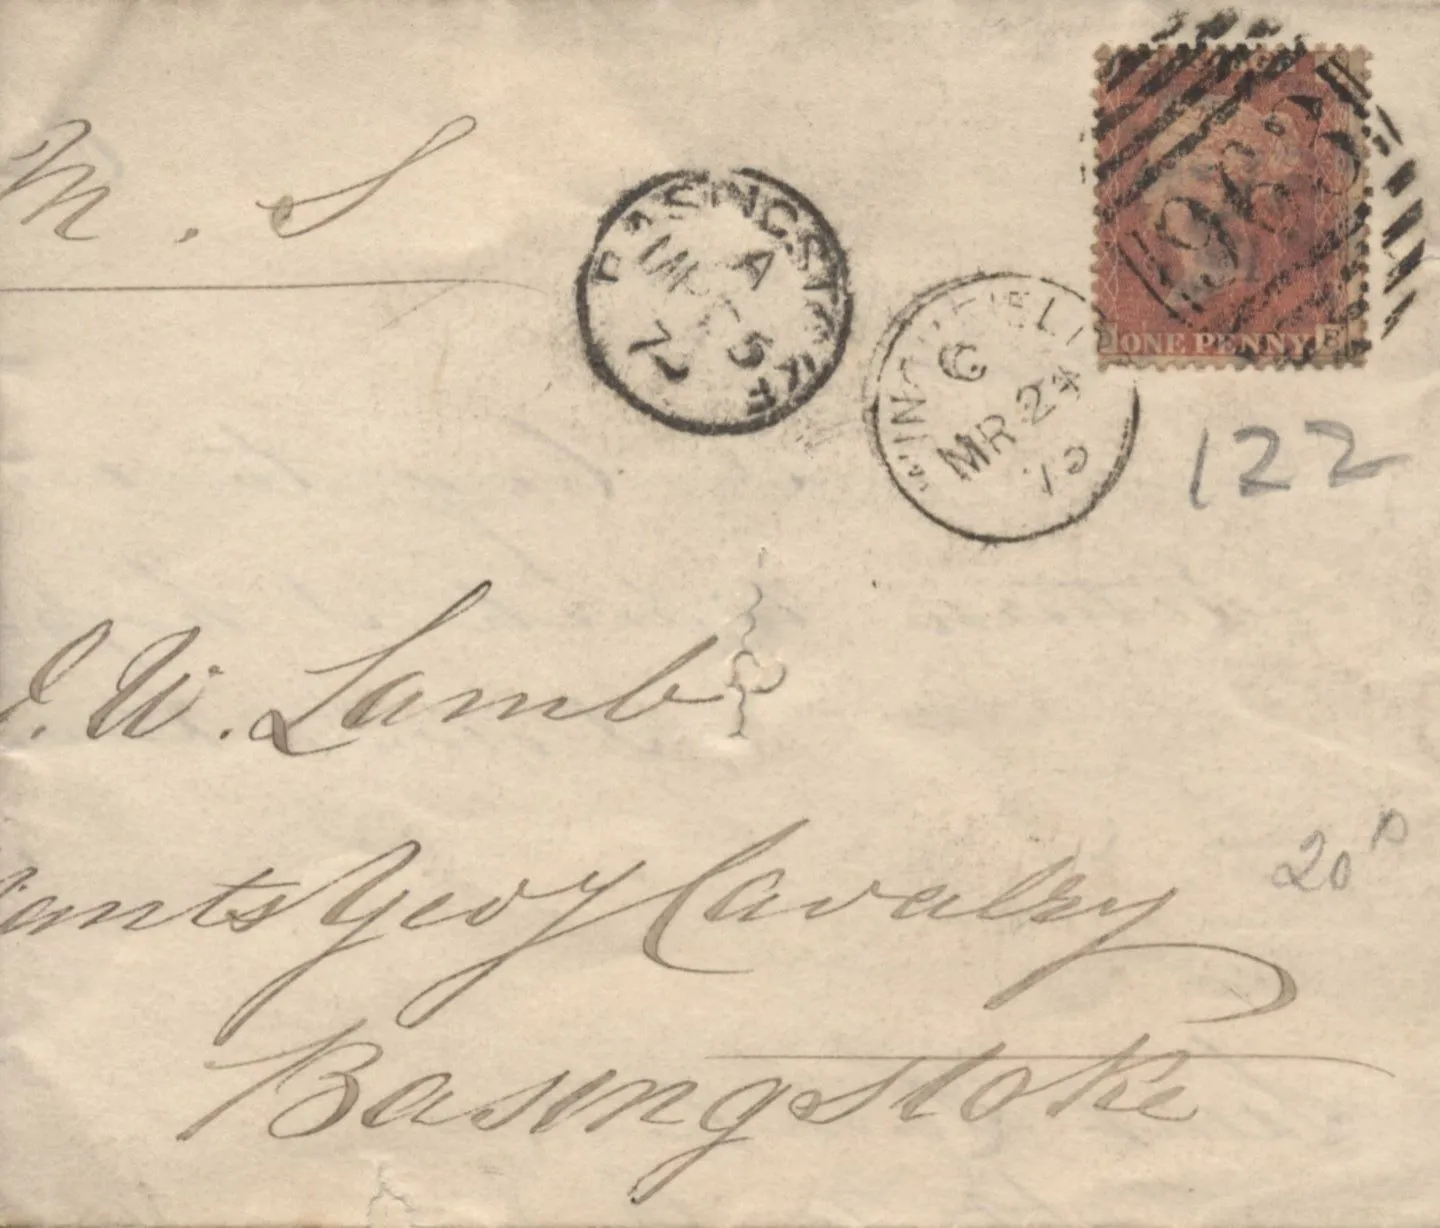 M. S
BASINGSTOKE
A
MR 25
72
WINCHFIELD
C
MR 24
72
963
ONE PENNY
122
J. W. Lamb
Hants Yeoy Cavalry
20 D
Basingstoke